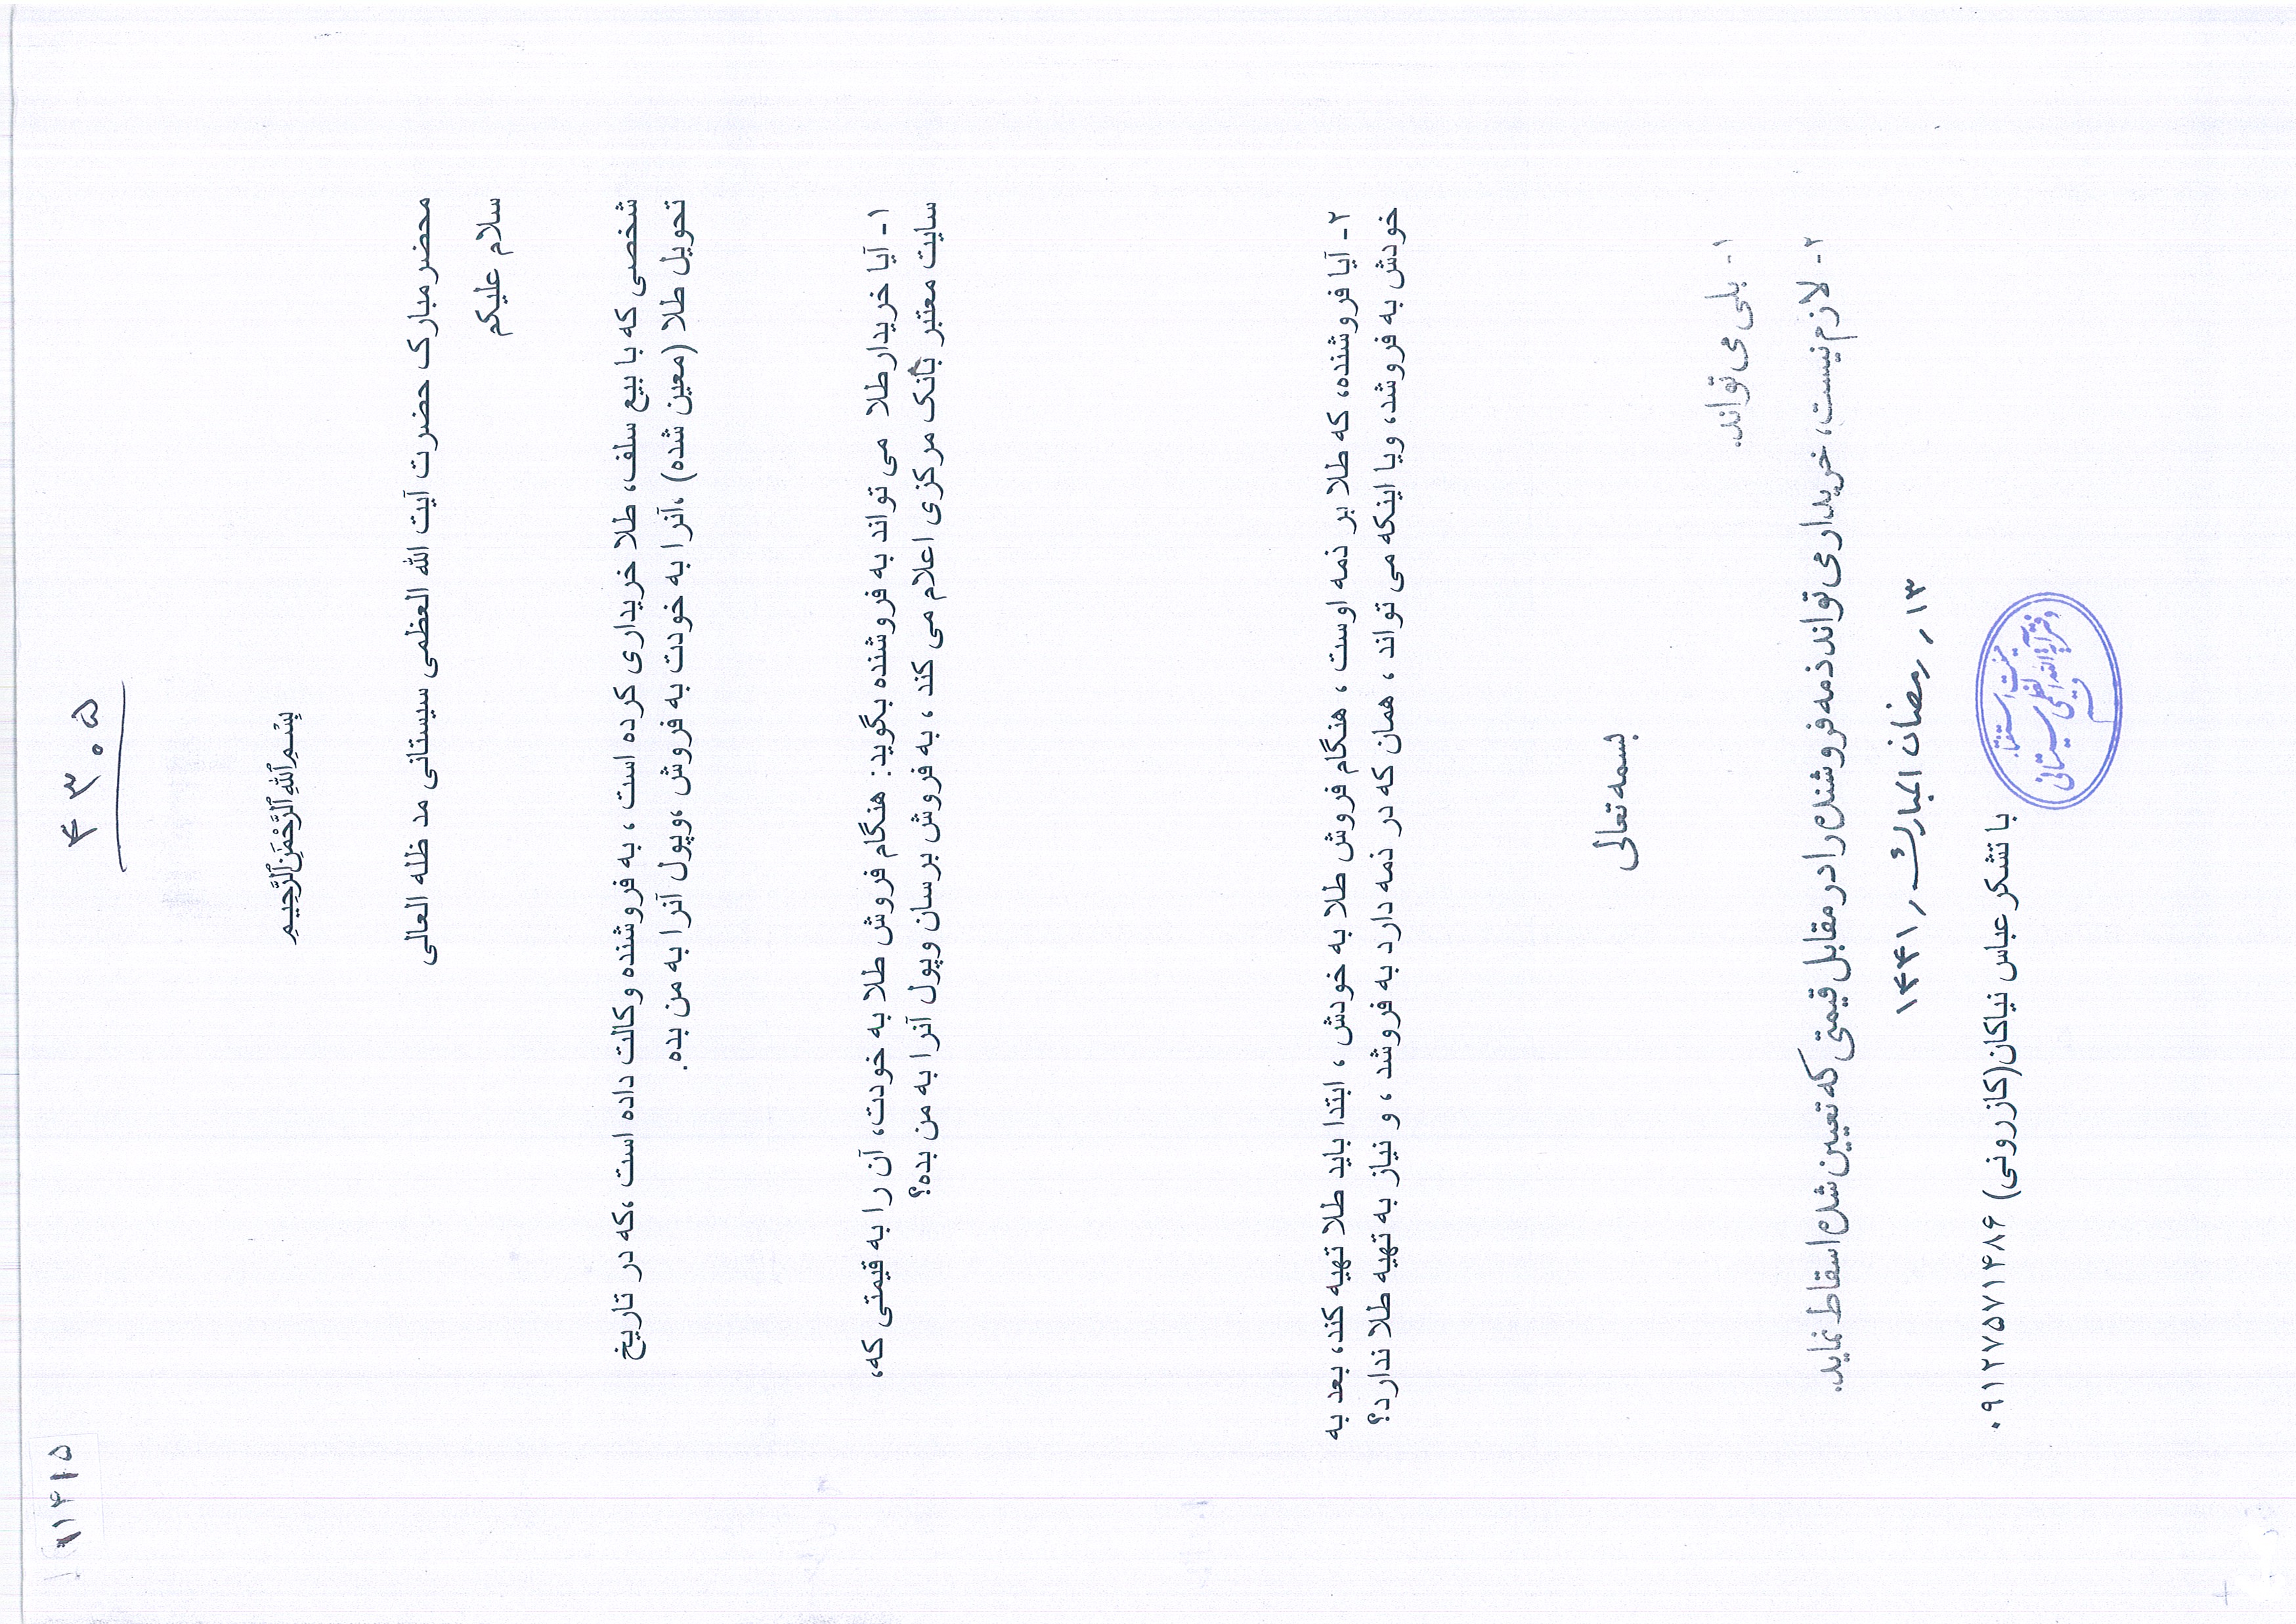 ۱۱۴۱۵
۴۳۰۵
بِسْمِ ٱللَّهِ ٱلرَّحْمَٰنِ ٱلرَّحِيمِ
محضر مبارک حضرت آیت الله العظمی سیستانی مد ظله العالی
سلام علیکم
شخصی که با بیع سلف، طلا خریداری کرده است ، به فروشنده وکالت داده است ،که در تاریخ
تحویل طلا (معین شده) ،آنرا به خودت به فروش ،وپول آنرا به من بده.
۱- آیا خریدار طلا می تواند به فروشنده بگوید: هنگام فروش طلا به خودت، آن را به قیمتی که،
سایت معتبر بانک مرکزی اعلام می کند ، به فروش برسان وپول آنرا به من بده؟
۲- آیا فروشنده، که طلا بر ذمه اوست ، هنگام فروش طلا به خودش ، ابتدا باید طلا تهیه کند، بعد به
خودش به فروشد، ویا اینکه می تواند ، همان که در ذمه دارد به فروشد ، و نیاز به تهیه طلا ندارد؟
بسمه تعالی
۱- بلی می تواند.
۲- لازم نیست، خریدار می تواند ذمه فروشنده را در مقابل قیمتی که تعیین شده اسقاط نماید.
۱۳ رمضان المبارک ۱۴۴۱
با تشکر عباس نیاکان(کازرونی) ۰۹۱۲۷۵۷۱۴۸۶
دفتر آیة الله العظمی سیستانی